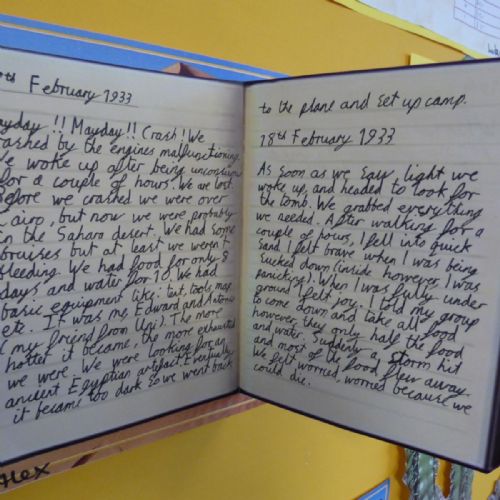 February 1933
Mayday !! Mayday!! Crash! We
crashed by the engines malfunctioning.
We woke up after being unconscious
for a couple of hours. We are lost.
Before we crashed we were over
Cairo, but now we were probably
in the Sahara desert. We had some
bruises but at least we weren't
bleeding. We had food for only 8
days and water for 10. We had
basic equipment like: tents, tools, map
etc. It was me, Edward and Antonio
(my friend from Uni). The more
hotter it became, the more exhausted
we were. We were looking for an
ancient Egyptian artefact. Eventually
it became too dark so we went back
to the plane and set up camp.
18th February 1933
As soon as we saw, light we
woke up, and headed to look for
the tomb. We grabbed everything
we needed. After walking for a
couple of hours, I fell into quick
sand I felt brave when I was being
sucked down (inside however I was
panicking). When I was fully under
ground I felt joy. I told my group
to come down and take all food
however they only half the food
and water. Suddenly a storm hit
and most of the food flew away.
We felt worried, worried because we
could die.
Alex